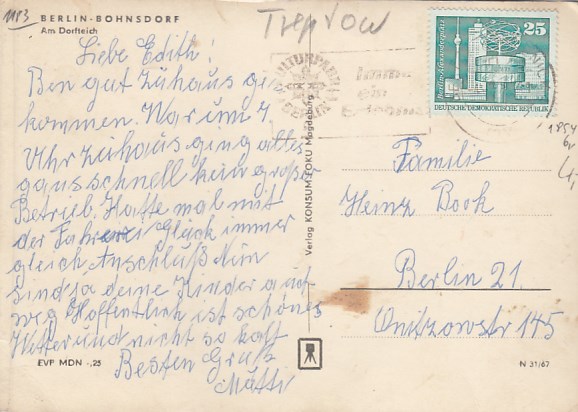 1153
BERLIN-BOHNSDORF
Am Dorfteich
Treptow
KULTURPARK
BERLIN
Immer
ein
Erlebnis
Berlin, Alexanderplatz
25
DEUTSCHE DEMOKRATISCHE REPUBLIK
Liebe Edith!
Ben gut zuhaus ge
kommen. War um 7
Uhr zuhaus ging alles
ganz schnell kein großer
Betrieb. Hatte mal mit
der Fahrerei Glück immer
gleich Anschluß. Nun
sind ja deine Kinder auch
weg. Hoffentlich ist schönes
Wetter und nicht so kalt
Besten Gruß
Mutti
EVP MDN -,25
Verlag KONSUM-FOKU Magdeburg
Familie
Heinz Book
Berlin 21.
Quitzowstr 145
N 31/67